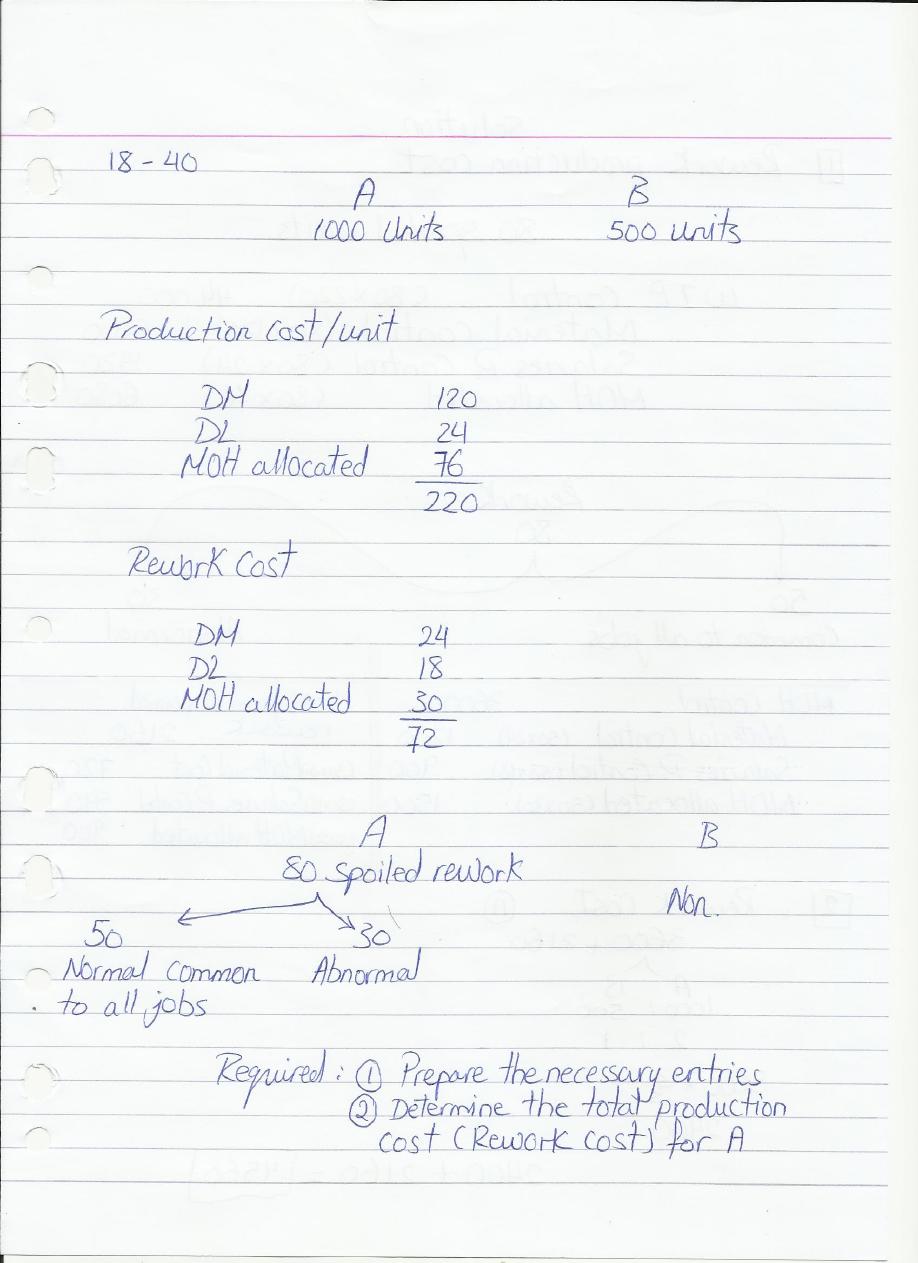 18-40
A B
1000 Units 500 Units
Production Cost/unit
DM 120
DL 24
MOH allocated 76
220
Rework Cost
DM 24
DL 18
MOH allocated 30
72
A B
80 spoiled rework
Non.
50 30
Normal common Abnormal
to all jobs
Required: ① Prepare the necessary entries
② Determine the total production
cost (Rework cost) for A